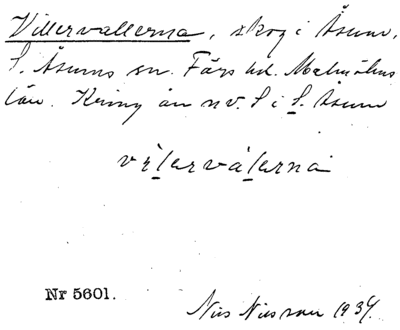 Villervallerna, skog i Åsum,
S. Åsums sn. Färs hd. Malmöhus
län. Kring ån n.v. S i S. Åsum
vilervàlerna
Nr 5601.
Nils Nilsson 1934.